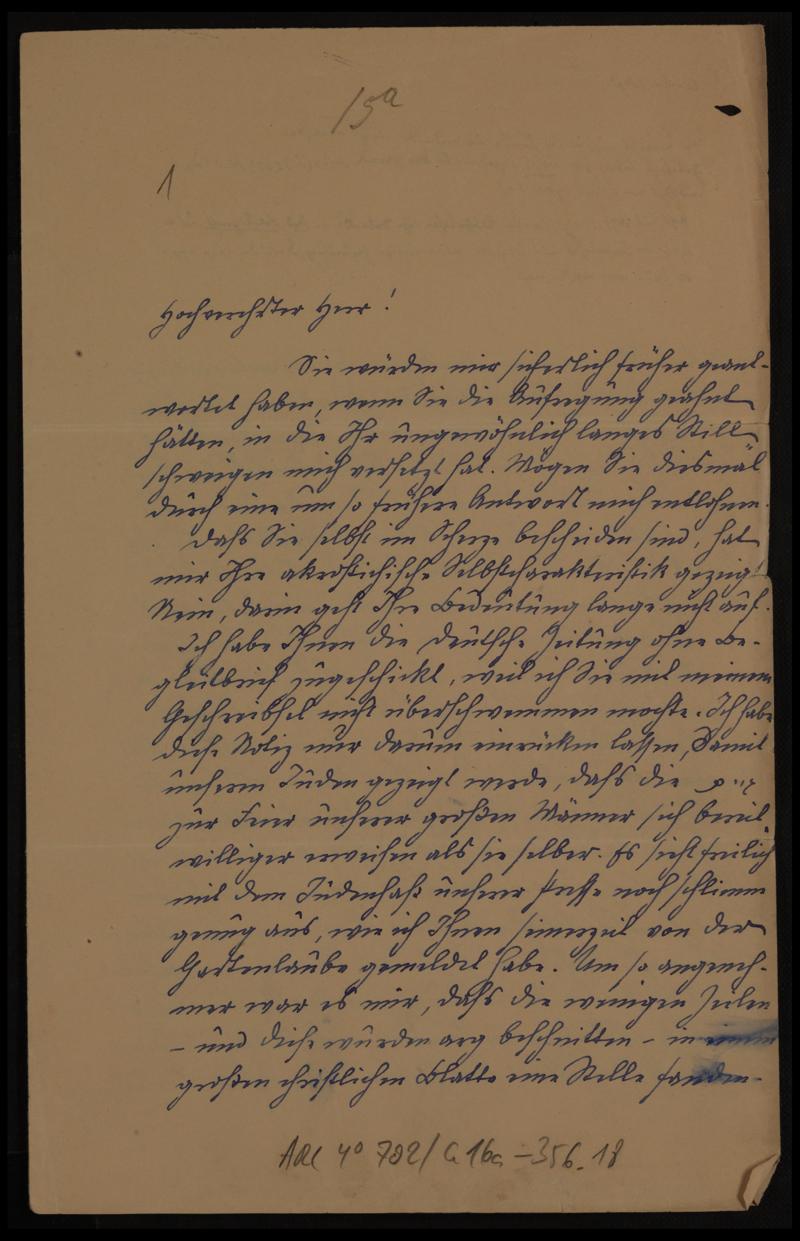 15a
1
Hochverehrter Herr!
Sie würden mir sicherlich früher geant-
wortet haben, wenn Sie die Aufregung geahnt
hätten, in die Ihr ungewöhnlich langes Still-
schweigen mich versetzt hat. Mögen Sie diesmal
durch eine um so frühere Antwort mich entlohnen.
Daß Sie selbst im Scherze bescheiden sind, hat
mir Ihre akrostichische Selbstcharakteristik gezeigt
Nein, darin geht Ihre Bedeutung lange nicht auf.
Ich habe Ihnen die Deutsche Zeitung ohne Be-
gleitbrief zugeschickt, weil ich Sie mit meinem
Geschreibsel nicht überschwemmen mochte. Ich habe
diese Notiz nur darum einrücken lassen, damit
unseren Juden gezeigt werde, daß die
zur Feier unserer großen Männer sich bereit-
williger erweisen als sie selber. Es sieht freilich
mit dem Judenhaß unserer Presse noch schlimm
genug aus, wie ich Ihnen seinerzeit von der
Gartenlaube gemeldet habe. Um so angeneh-
mer war es mir, daß die wenigen Zeilen
– und diese wurden arg beschnitten – in einem
großen christlichen Blatte eine Stelle fanden.
ARC 4° 792/G 16a – 356.18